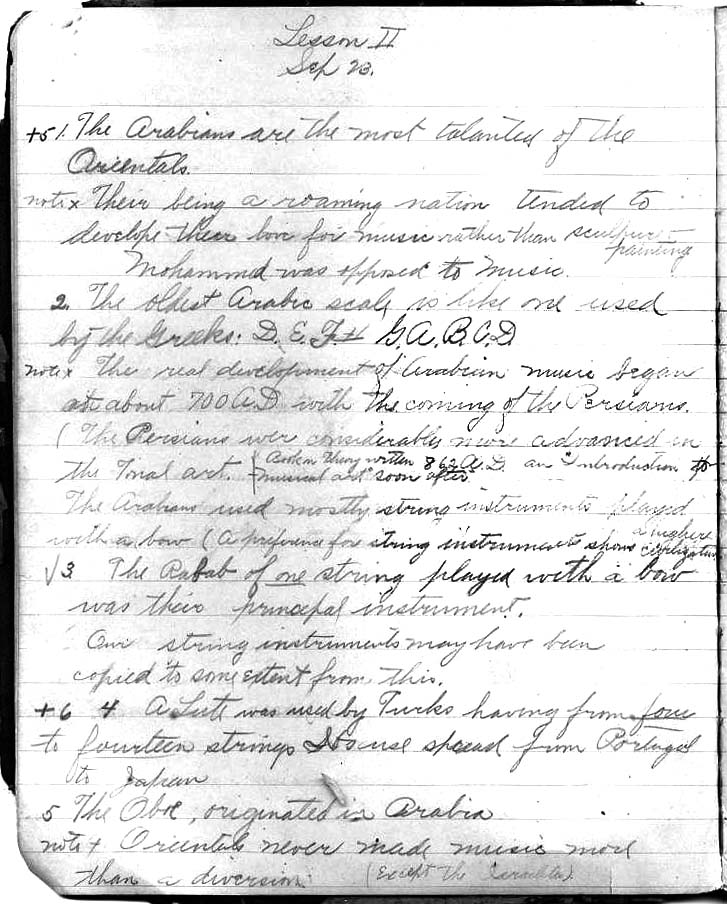 Lesson II
Sep 23.
+5 1. The Arabians are the most talanted of the
Orientals.
note x Their being a roaming nation tended to
develope their love for music rather than sculpture -
painting
Mohammd was opposed to music.
2. The oldest Arabic scale is like one used
by the Greeks: D. E. F# G. A. B. C. D
note x The real development of Arabian music began
at about 700 A.D with the coming of the Persians.
( The Persians wer considerably more advanced in
the Tonal art. { Book on Theory written 862 A.D. an "Introduction to
musical art" soon after
The Arabians used mostly string instruments played
with a bow ( A preference for string instruments shows a higher
civilization
√3 The Rabab of one string played with a bow
was their principal instrument.
Our string instruments may have been
copied to some extent from this.
+6 4 A Lute was used by Turks having from four
to fourteen strings Its use spread from Portugal
to Japan
5 The Oboe, originated in Arabia
note + Orientals never made music more
than a diversion (Except the Israelites)